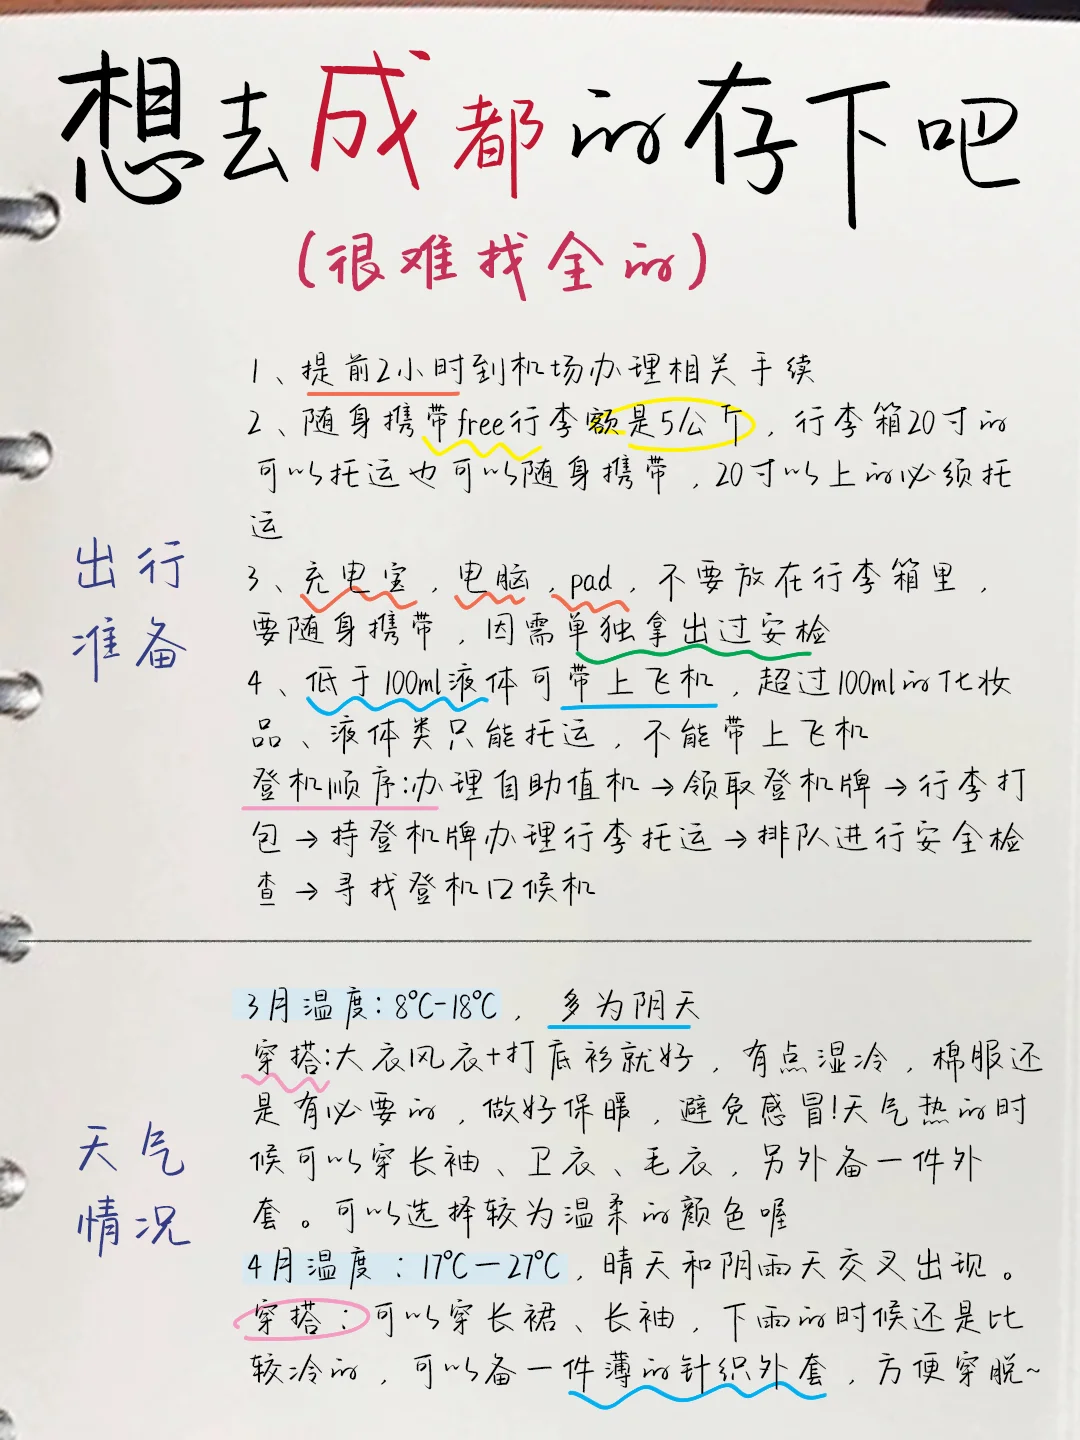 想去成都的存下吧
(很难找全的)
出行
准备
1、提前2小时到机场办理相关手续
2、随身携带free行李额是5公斤，行李箱20寸的
可以托运也可以随身携带，20寸以上的必须托
运
3、充电宝，电脑，pad，不要放在行李箱里，
要随身携带，因需单独拿出过安检
4、低于100ml液体可带上飞机，超过100ml的化妆
品、液体类只能托运，不能带上飞机
登机顺序:办理自助值机→领取登机牌→行李打
包→持登机牌办理行李托运→排队进行安全检
查→寻找登机口候机
天气
情况
3月温度:8℃-18℃，多为阴天
穿搭:大衣风衣+打底衫就好，有点湿冷，棉服还
是有必要的，做好保暖，避免感冒!天气热的时
候可以穿长袖、卫衣、毛衣，另外备一件外
套。可以选择较为温柔的颜色喔
4月温度：17℃—27℃，晴天和阴雨天交叉出现。
穿搭：可以穿长裙、长袖，下雨的时候还是比
较冷的，可以备一件薄的针织外套，方便穿脱~